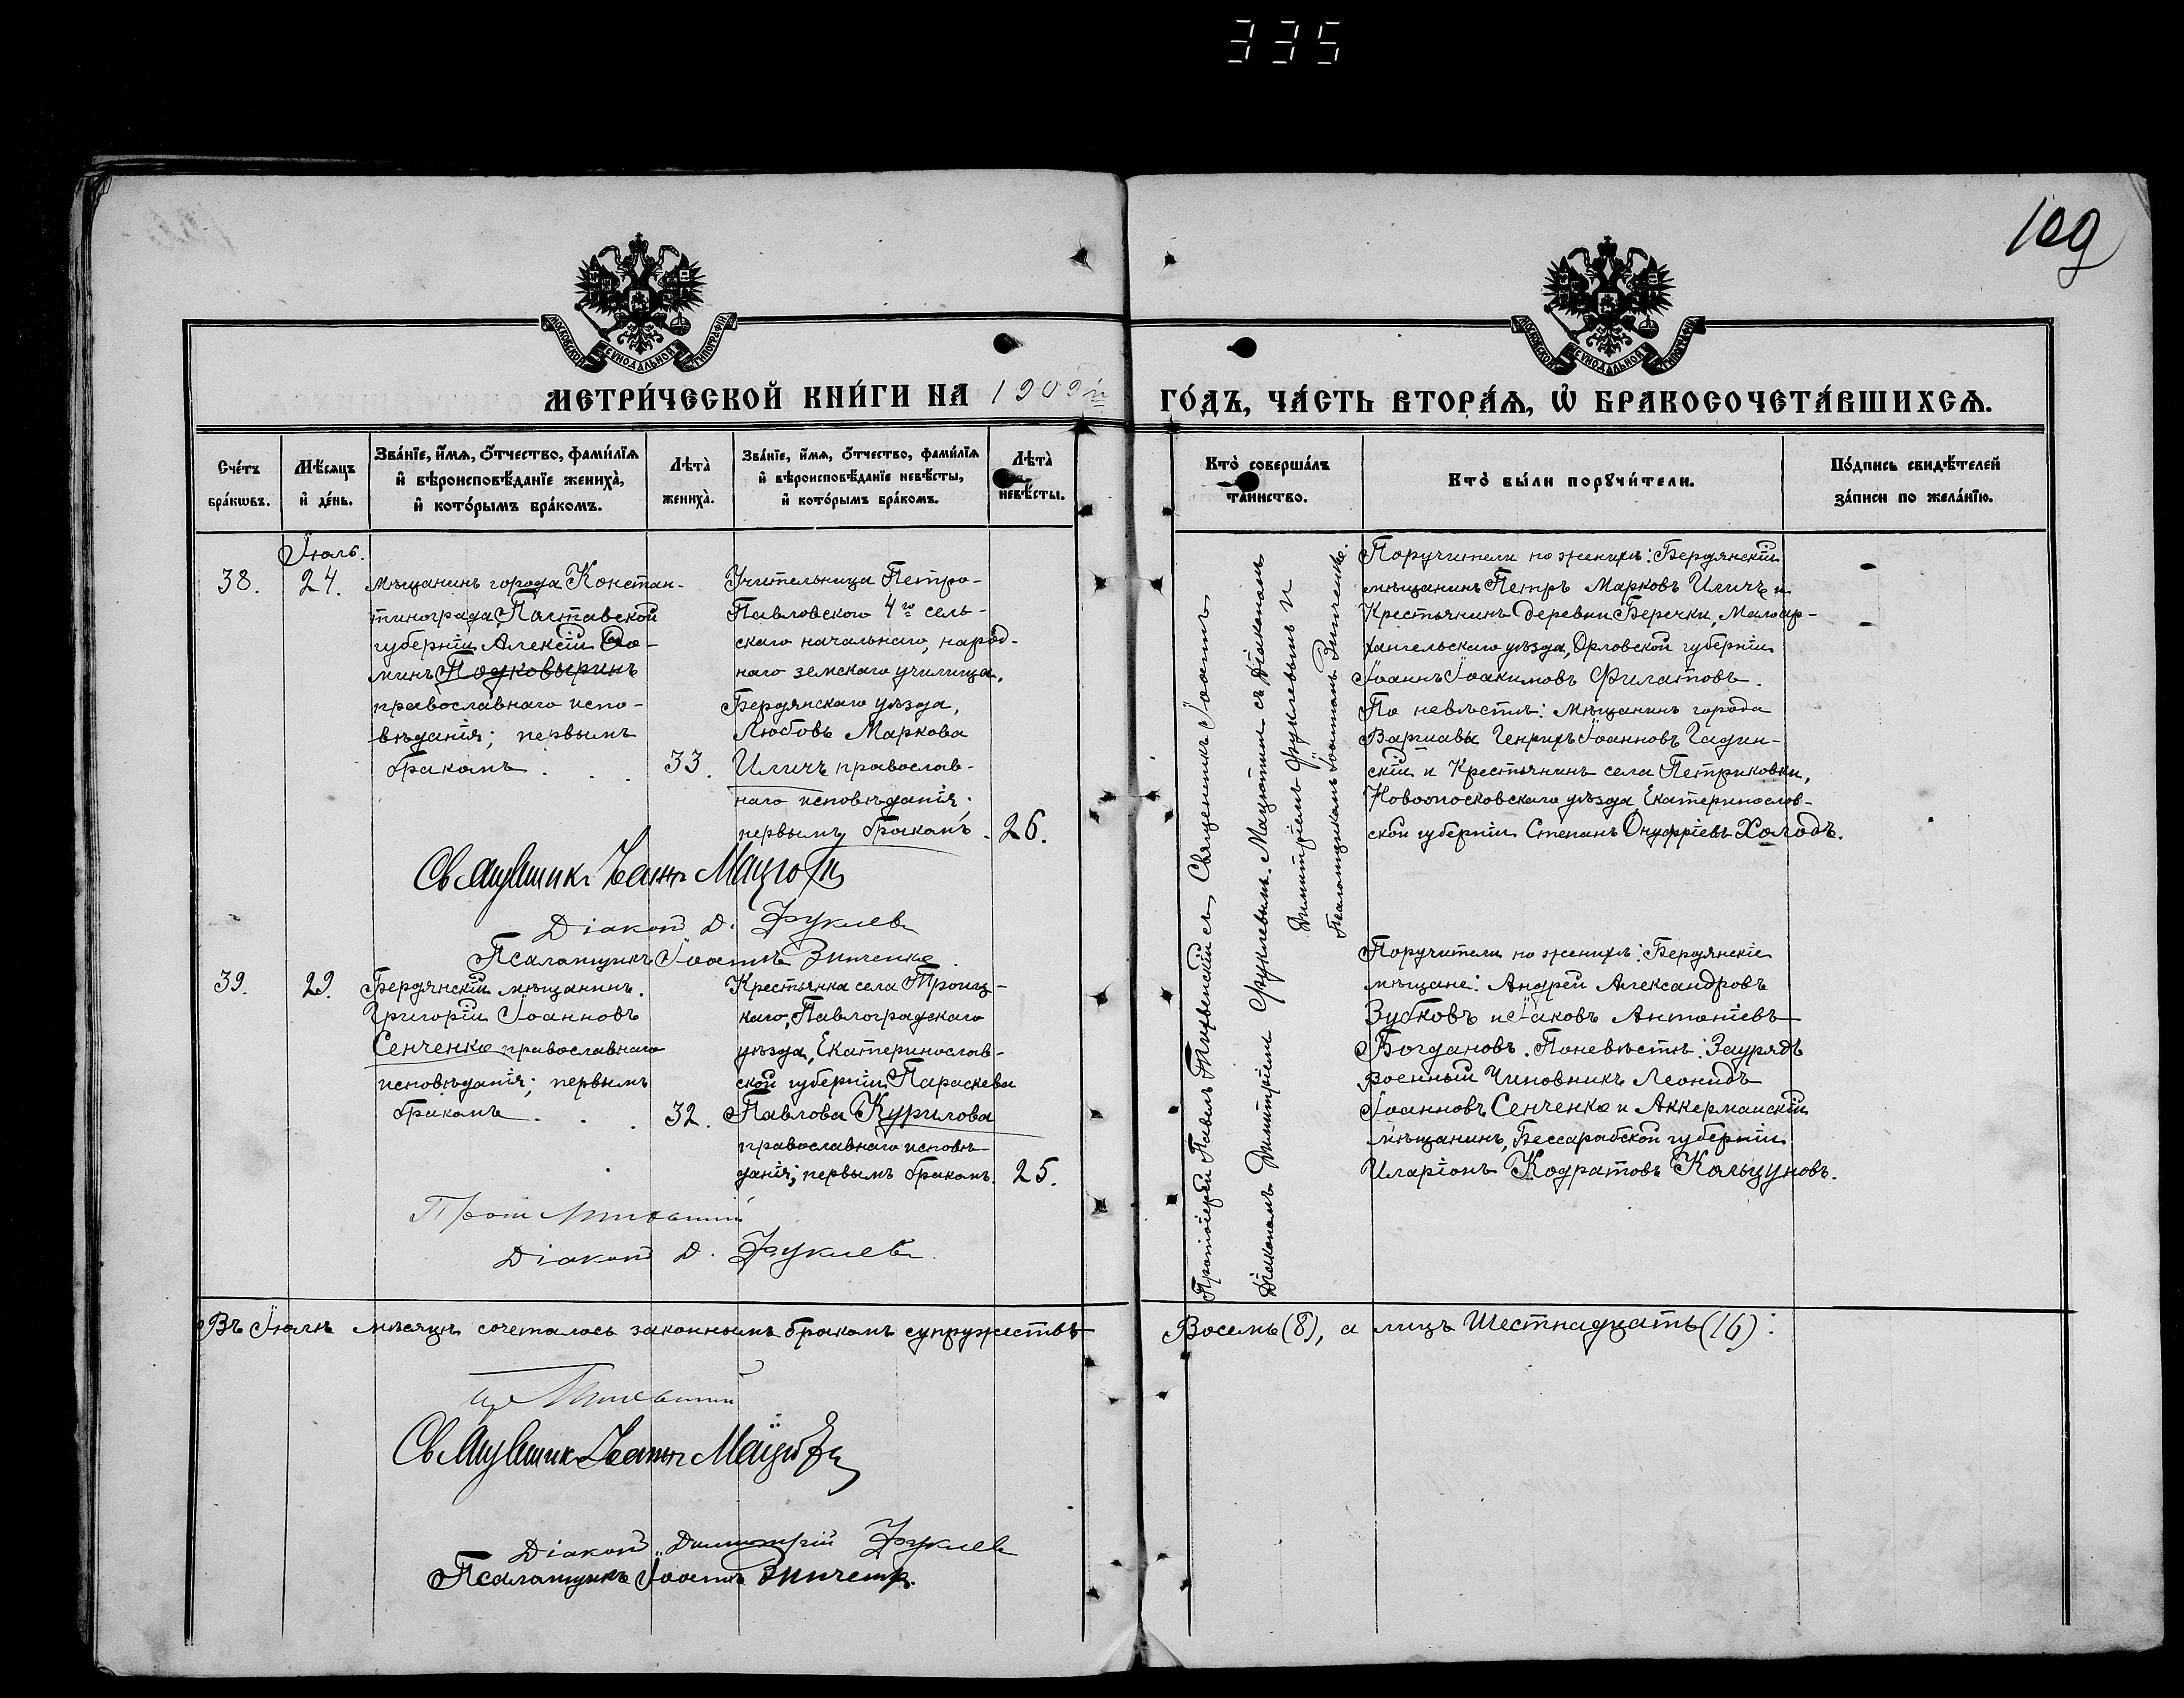 335
109
МОСКОВСКОЙ СѴНОДАЛЬНОЙ ТИПОГРАФІИ
МОСКОВСКОЙ СѴНОДАЛЬНОЙ ТИПОГРАФІИ
МЕТРИ́ЧЕСКОЙ КНИ́ГИ НА 1905й ГО́ДЪ, ЧА́СТЬ ВТОРА́Ѧ, Ѡ҆ БРАКОСОЧЕТА́ВШИХСѦ.
Сче́тъ бра́кѡвъ.
Мѣ́сѧцъ и҆ де́нь.
Зва́нїе, и҆́мѧ, ѻ҆́тчество, фами́лїѧ и҆ вѣроисповѣ́данїе жениха̀, и҆ кото́рымъ бра́комъ.
Лѣта̀ жениха̀.
Зва́нїе, и҆́мѧ, ѻ҆́тчество, фами́лїѧ и҆ вѣроисповѣ́данїе невѣ́сты, и҆ кото́рымъ бра́комъ.
Лѣта̀ невѣ́сты.
Кто̀ соверша́лъ та́инство.
Кто̀ бы́ли порꙋчи́тели.
По́дпись свидѣ́телей за́писи по жела́нїю.
Іюль.
38.
24.
Мѣщанинъ города Констан-
тинограда, Полтавской
губерніи Алексій Ѳо-
минъ Подковыринъ
православнаго испо-
вѣданія; первымъ
бракомъ . . .
33.
Учительница Петро-
Павловского 4го сель-
скаго начальнаго, народ-
наго земскаго училища,
Бердянскаго уѣзда,
Любовь Маркова
Иличъ православ-
наго исповѣданія;
первымъ бракомъ.
26.
Священникъ Іоаннъ
Діаконъ Д. Фуклевъ
Псаломщикъ Іоаннъ Зинченко
Протоіерей Павелъ съ Священникъ Іоаннъ
Діакономъ Димитріемъ Фуклевымъ. съ Діакономъ
Димитріемъ Фуклевымъ и
Псаломщикомъ Іоанномъ Зинченко.
Поручители по женихѣ: Бердянскій
мѣщанинъ Петръ Марковъ Иличъ и
Крестьянинъ деревни Беречки, Малоар-
хангельскаго уѣзда, Орловской губерніи
Іоаннъ Іоакимовъ Филатовъ.
По невѣстѣ: мѣщанинъ города
Варшавы Генрихъ Іоанновъ Гадин-
скій и Крестьянинъ села Петриковки,
Новомосковскаго уѣзда, Екатеринослав-
ской губерніи Степанъ Онуфріевъ Холодъ.
39.
29.
Бердянскій мѣщанинъ.
Григорій Іоанновъ
Сенченко православнаго
исповѣданія; первымъ
бракомъ . . .
32.
Крестьянка села Троиц-
каго, Павлоградскаго
уѣзда, Екатеринослав-
ской губерніи Параскева
Павлова Курилова
православнаго исповѣ-
данія; первымъ бракомъ.
25.
Діаконъ Д. Фуклевъ
Поручители по женихѣ: Бердянскіе
мѣщане: Андрей Александровъ
Зубковъ и Іаковъ Антоніевъ
Богдановъ. По невѣстѣ: Зауряд
военный Чиновникъ Леонидъ
Іоанновъ Сенченко и Аккерманскій
мѣщанинъ, Бессарабской губерніи
Иларіонъ Кодратовъ Кольцуновъ.
Въ Іюлѣ мѣсяцѣ сочеталось законнымъ бракомъ супружествъ Восемь (8), а лицъ Шестнадцать (16):
Священникъ Іоаннъ
Діаконъ Димитрій Фуклевъ
Псаломщикъ Іоаннъ Зинченко.